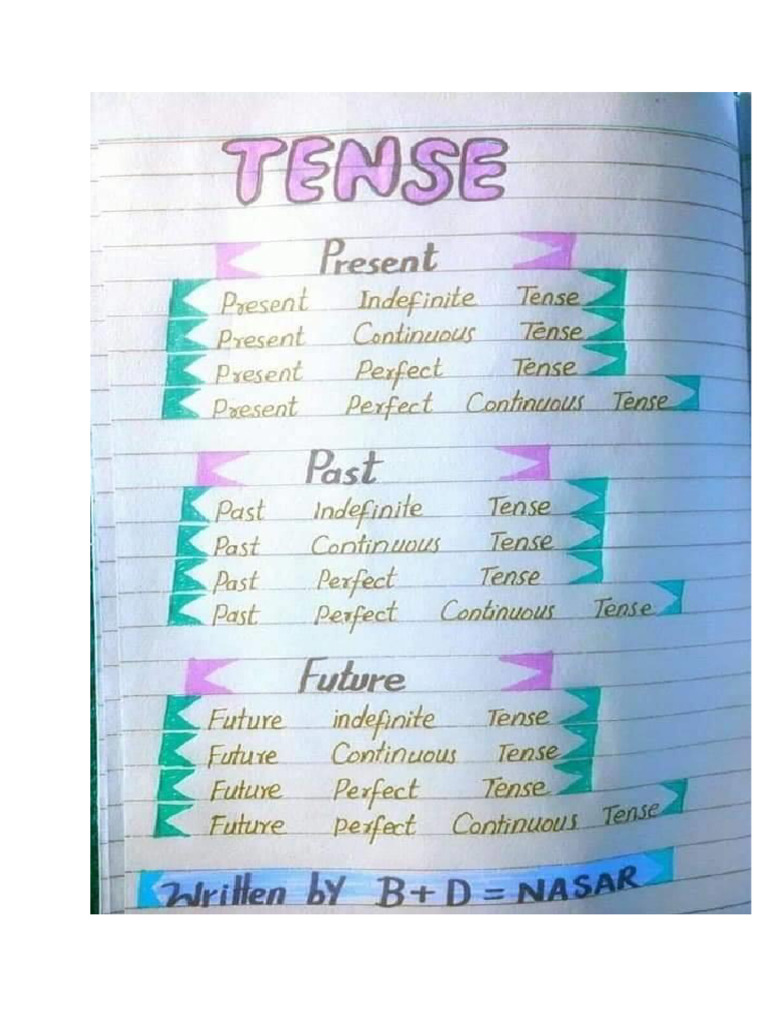 TENSE
Present
Present Indefinite Tense
Present Continuous Tense
Present Perfect Tense
Present Perfect Continuous Tense
Past
Past Indefinite Tense
Past Continuous Tense
Past Perfect Tense
Past Perfect Continuous Tense
Future
Future indefinite Tense
Future Continuous Tense
Future Perfect Tense
Future perfect Continuous Tense
Written by B+D=NASAR